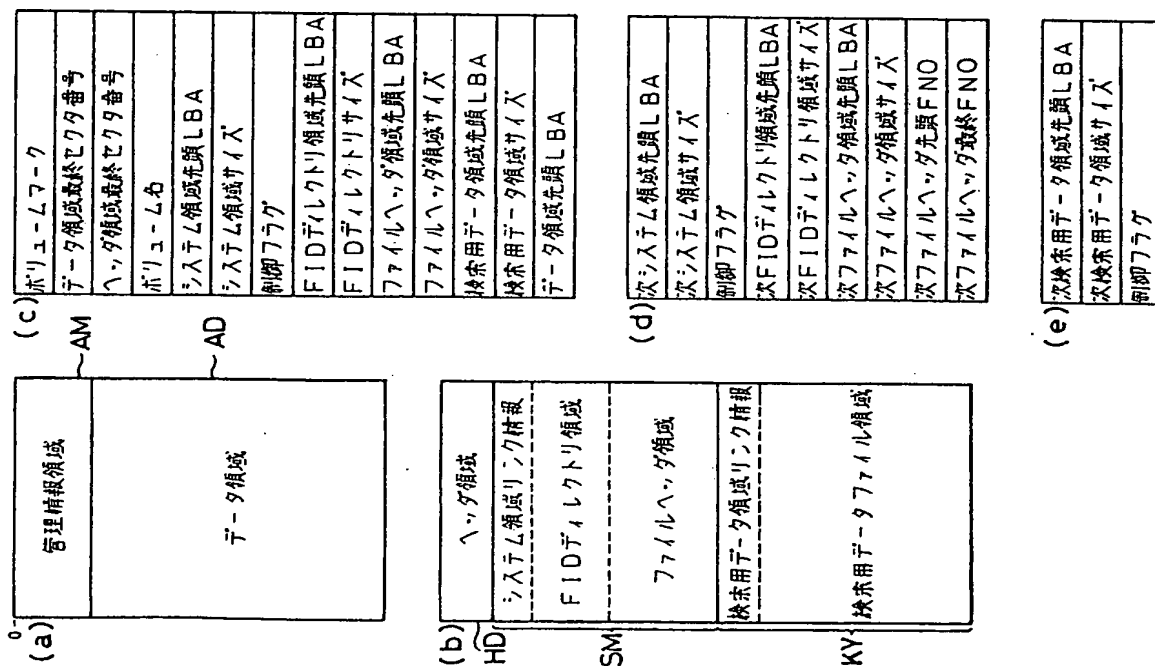 (a)
0
管理情報領域
AM
データ領域
AD
(b)
ヘッダ領域
HD
システム領域リンク情報
FIDディレクトリ領域
ファイルヘッダ領域
SM
検索用データ領域リンク情報
検索用データファイル領域
KY
(c)
ボリュームマーク
データ領域最終セクタ番号
ヘッダ領域最終セクタ番号
ボリューム名
システム領域先頭LBA
システム領域サイズ
制御フラグ
FIDディレクトリ領域先頭LBA
FIDディレクトリサイズ
ファイルヘッダ領域先頭LBA
ファイルヘッダ領域サイズ
検索用データ領域先頭LBA
検索用データ領域サイズ
データ領域先頭LBA
(d)
次システム領域先頭LBA
次システム領域サイズ
制御フラグ
次FIDディレクトリ領域先頭LBA
次FIDディレクトリ領域サイズ
次ファイルヘッダ領域先頭LBA
次ファイルヘッダ領域サイズ
次ファイルヘッダ先頭FNO
次ファイルヘッダ最終FNO
(e)
次検索用データ領域先頭LBA
次検索用データ領域サイズ
制御フラグ